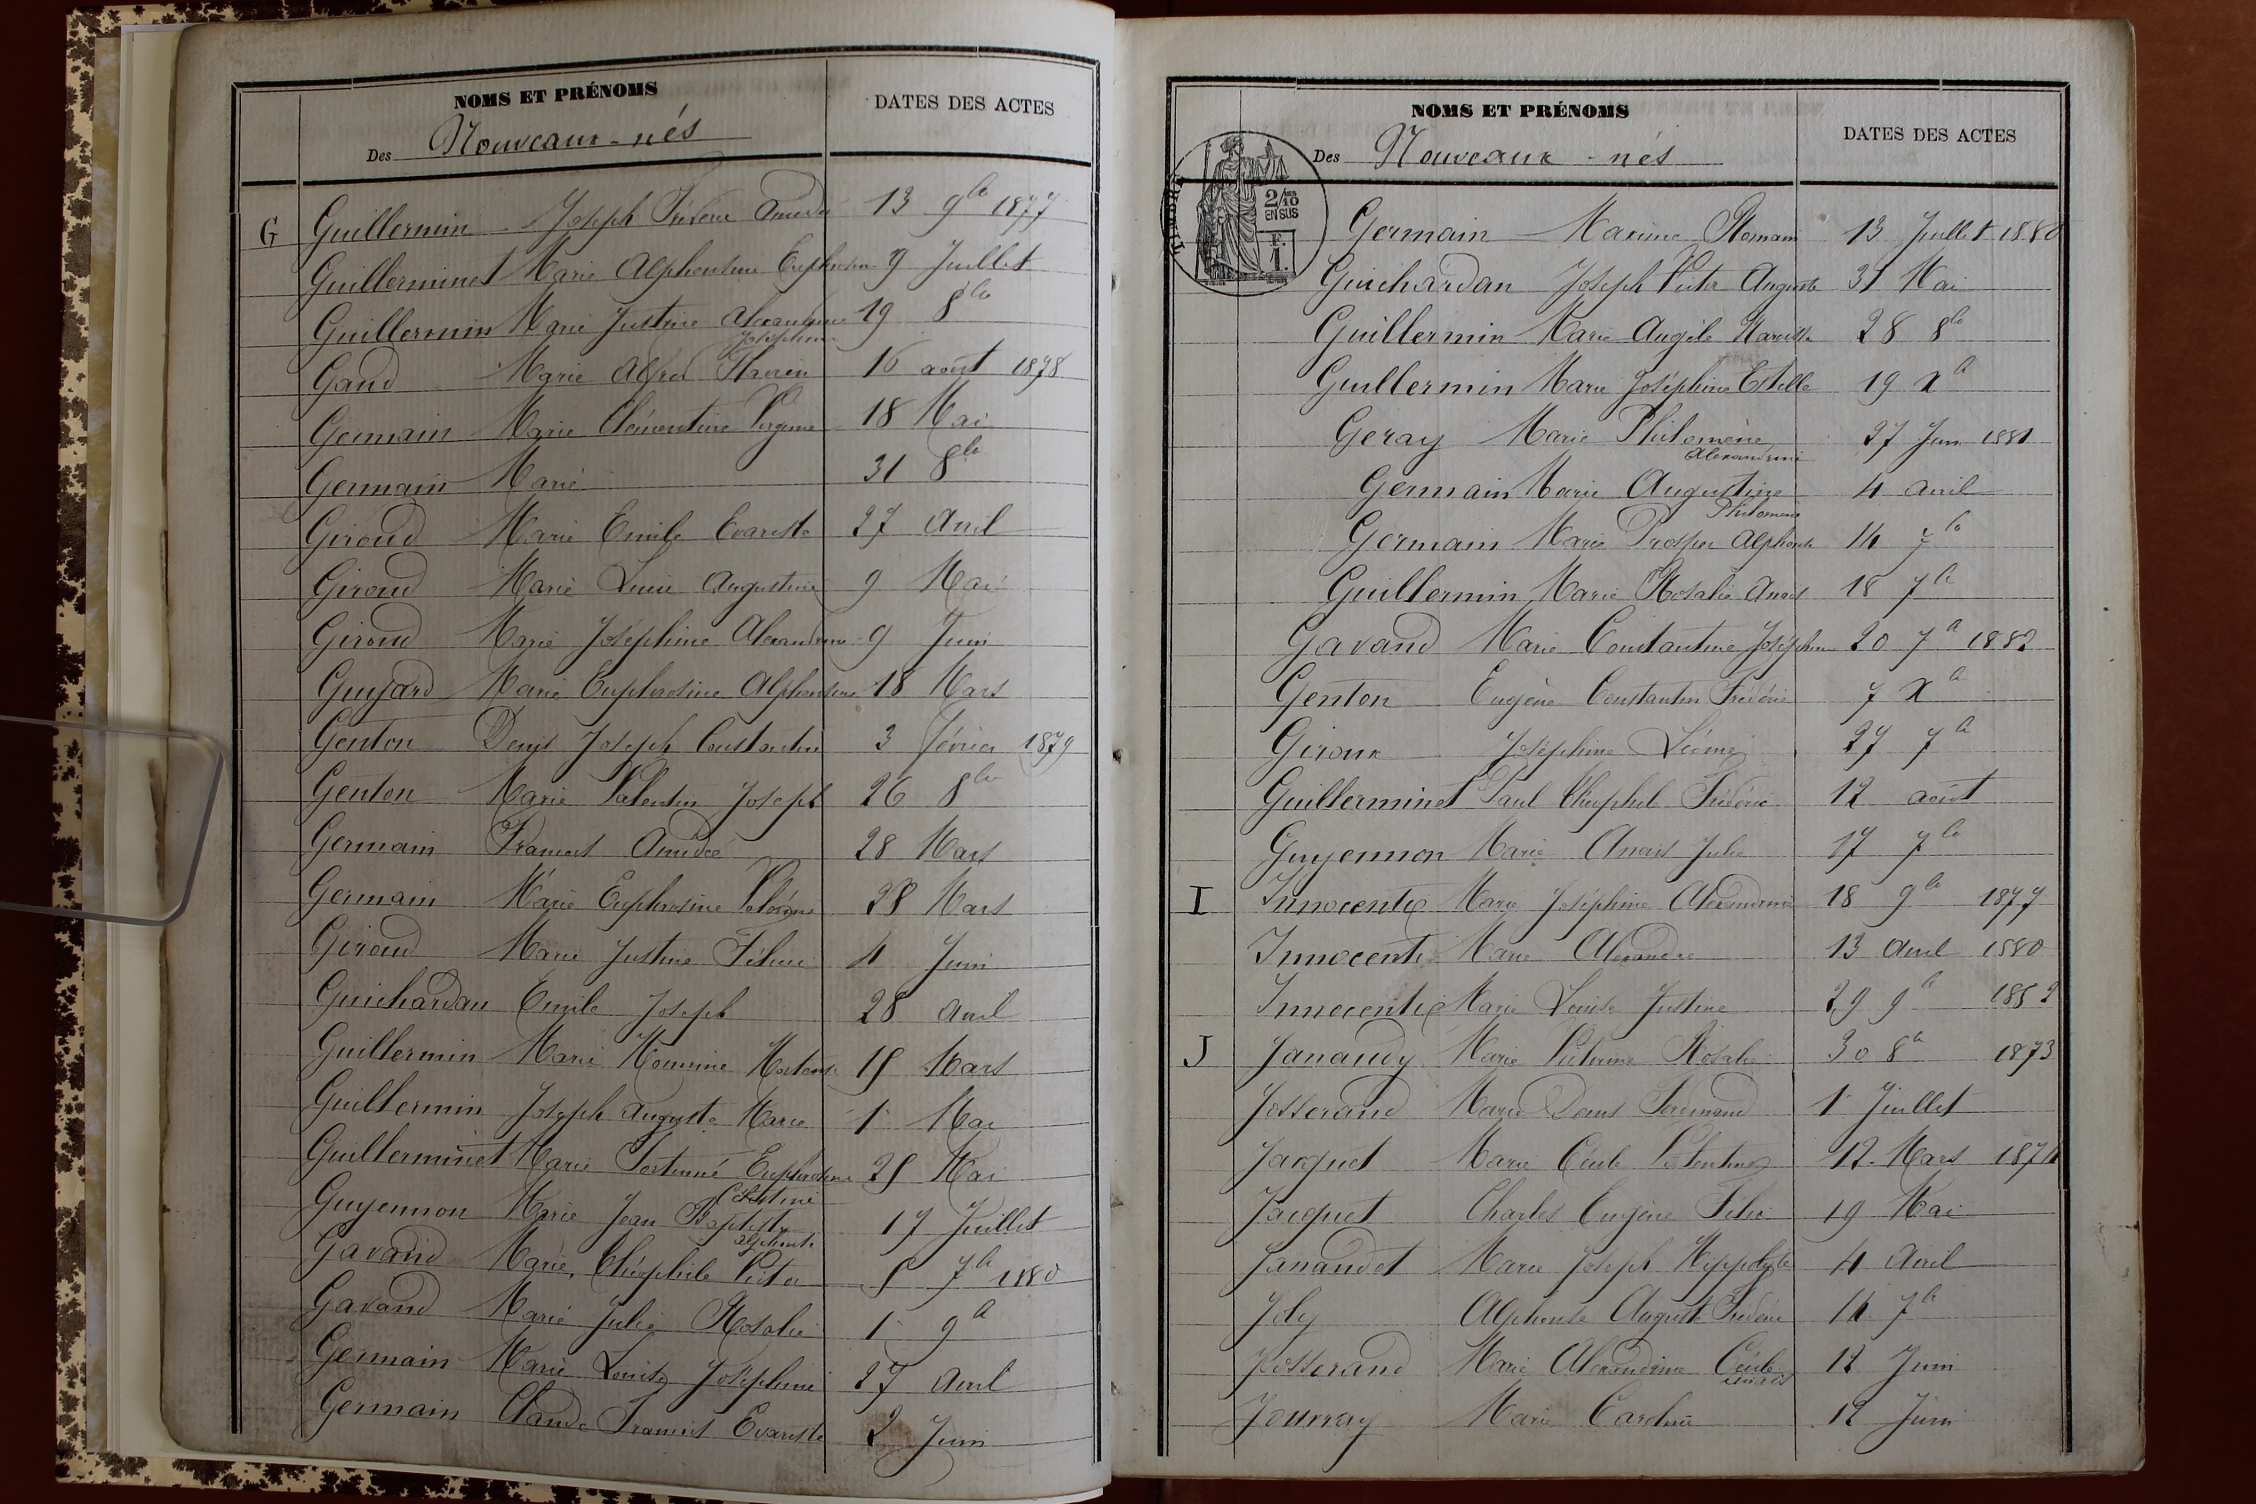 NOMS ET PRÉNOMS
DATES DES ACTES
Des Nouveaux-nés
G Guillermin Joseph Frédéric Amédé 13 9bre 1877
Guillerminet Marie Alphonsine Euphrosine 9 Juillet
Guillermin Marie Justine Alexandrine 19 8bre
Joséphine
Gand Marie Alfred Flavien 16 août 1878
Germain Marie Clémentine Virginie 18 Mai
Germain Marie 31 8bre
Giroud Marie Emile Evariste 27 Avril
Giroud Marie Augustine 9 Mai
Giroud Marie Joséphine Alexandrine 9 Juin
Guyard Marie Euphrosine Alphonsine 18 Mars
Genton Denis Joseph Constantin 3 février 1879
Genton Marie Valentin Joseph 26 8bre
Germain Francois Amédée 28 Mars
Germain Marie Euphrosine 28 Mars
Giroud Marie Justine 4 Juin
Guichardan Emile Joseph 28 Avril
Guillermin Marie Hortense 15 Mars
Guillermin Joseph Auguste Marie 1 Mai
Guillerminet Marie Euphrosine 25 Mai
Célestine
Guyennon Marie Jean Baptiste 17 Juillet
Alphonse
Gavand Marie Théophile Victor 5 7bre 1880
Gavand Marie Julie Rosalie 1 9bre
Germain Marie Louise Joséphine 27 Avril
Germain Claude Francois Evariste 2 Juin
NOMS ET PRÉNOMS
DATES DES ACTES
Des Nouveaux-nés
2/10
EN SUS
F.
1.
Germain Maxime Romain 13 Juillet 1880
Guichardan Joseph Victor Auguste 31 Mai
Guillermin Marie Angèle 28 8bre
Guillermin Marie Joséphine Estelle 19 Xbre
Geray Marie Philomène 27 Juin 1881
Alexandrine
Germain Marie Augustine 4 avril
Philomène
Germain Marie Prosper Alphonse 14 7bre
Guillermin Marie Rosalie Anaïs 18 7bre
Gavand Marie Constantine Joséphine 20 7bre 1882
Genton Eugène Constantin Frédéric 7 Xbre
Giroux Joséphine 27 7bre
Guillerminet Paul Théophile Frédéric 12 août
Guyennon Marie Anaïs Julie 17 7bre
I Innocenti Marie Joséphine Alexandrine 18 9bre 1877
Innocenti Marie Alexandre 13 Avril 1880
Innocenti Marie Louise Justine 29 9bre 1882
J Janaudy Marie Victorine Rosalie 30 8bre 1873
Josserand Marie Denis Ferdinand 1 Juillet
Jacquet Marie Cécile Valentine 12 Mars 1874
Jacquet Charles Eugène Félix 19 Mai
Janaudet Marie Joseph Hyppolyte 4 Avril
Joly Alphonse Auguste Frédéric 14 7bre
Josserand Marie Alexandrine Cécile 12 Juin
Jourray Marie Caroline 12 Juin